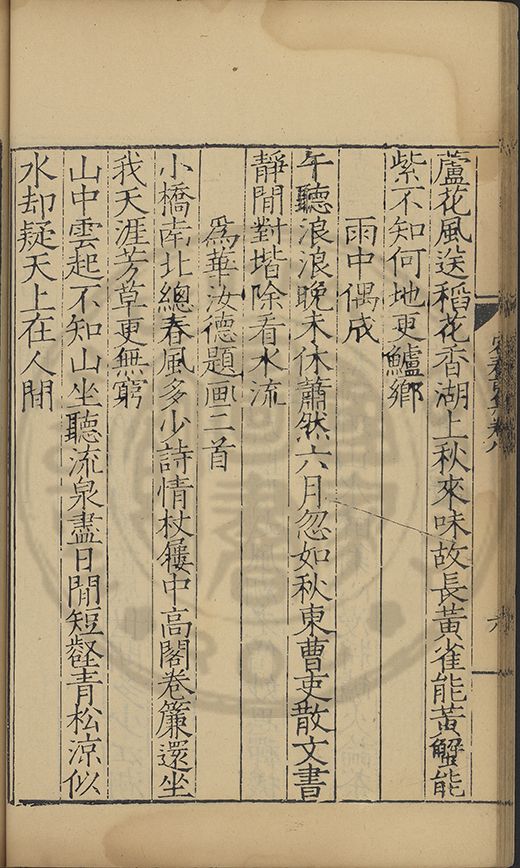 蘆花風送稻花香湖上秋來味故長黃雀能黃蟹能
紫不知何地更鱸鄉
雨中偶成
午聽浪浪晚未休蕭然六月忽如秋東曹吏散文書
靜閒對堦除看水流
爲華汝德題画二首
小橋南北總春風多少詩情杖屨中高閣卷簾還坐
我天涯芳草更無窮
山中雲起不知山坐聽流泉盡日閒短壑青松涼似
水却疑天上在人間
卷八
六